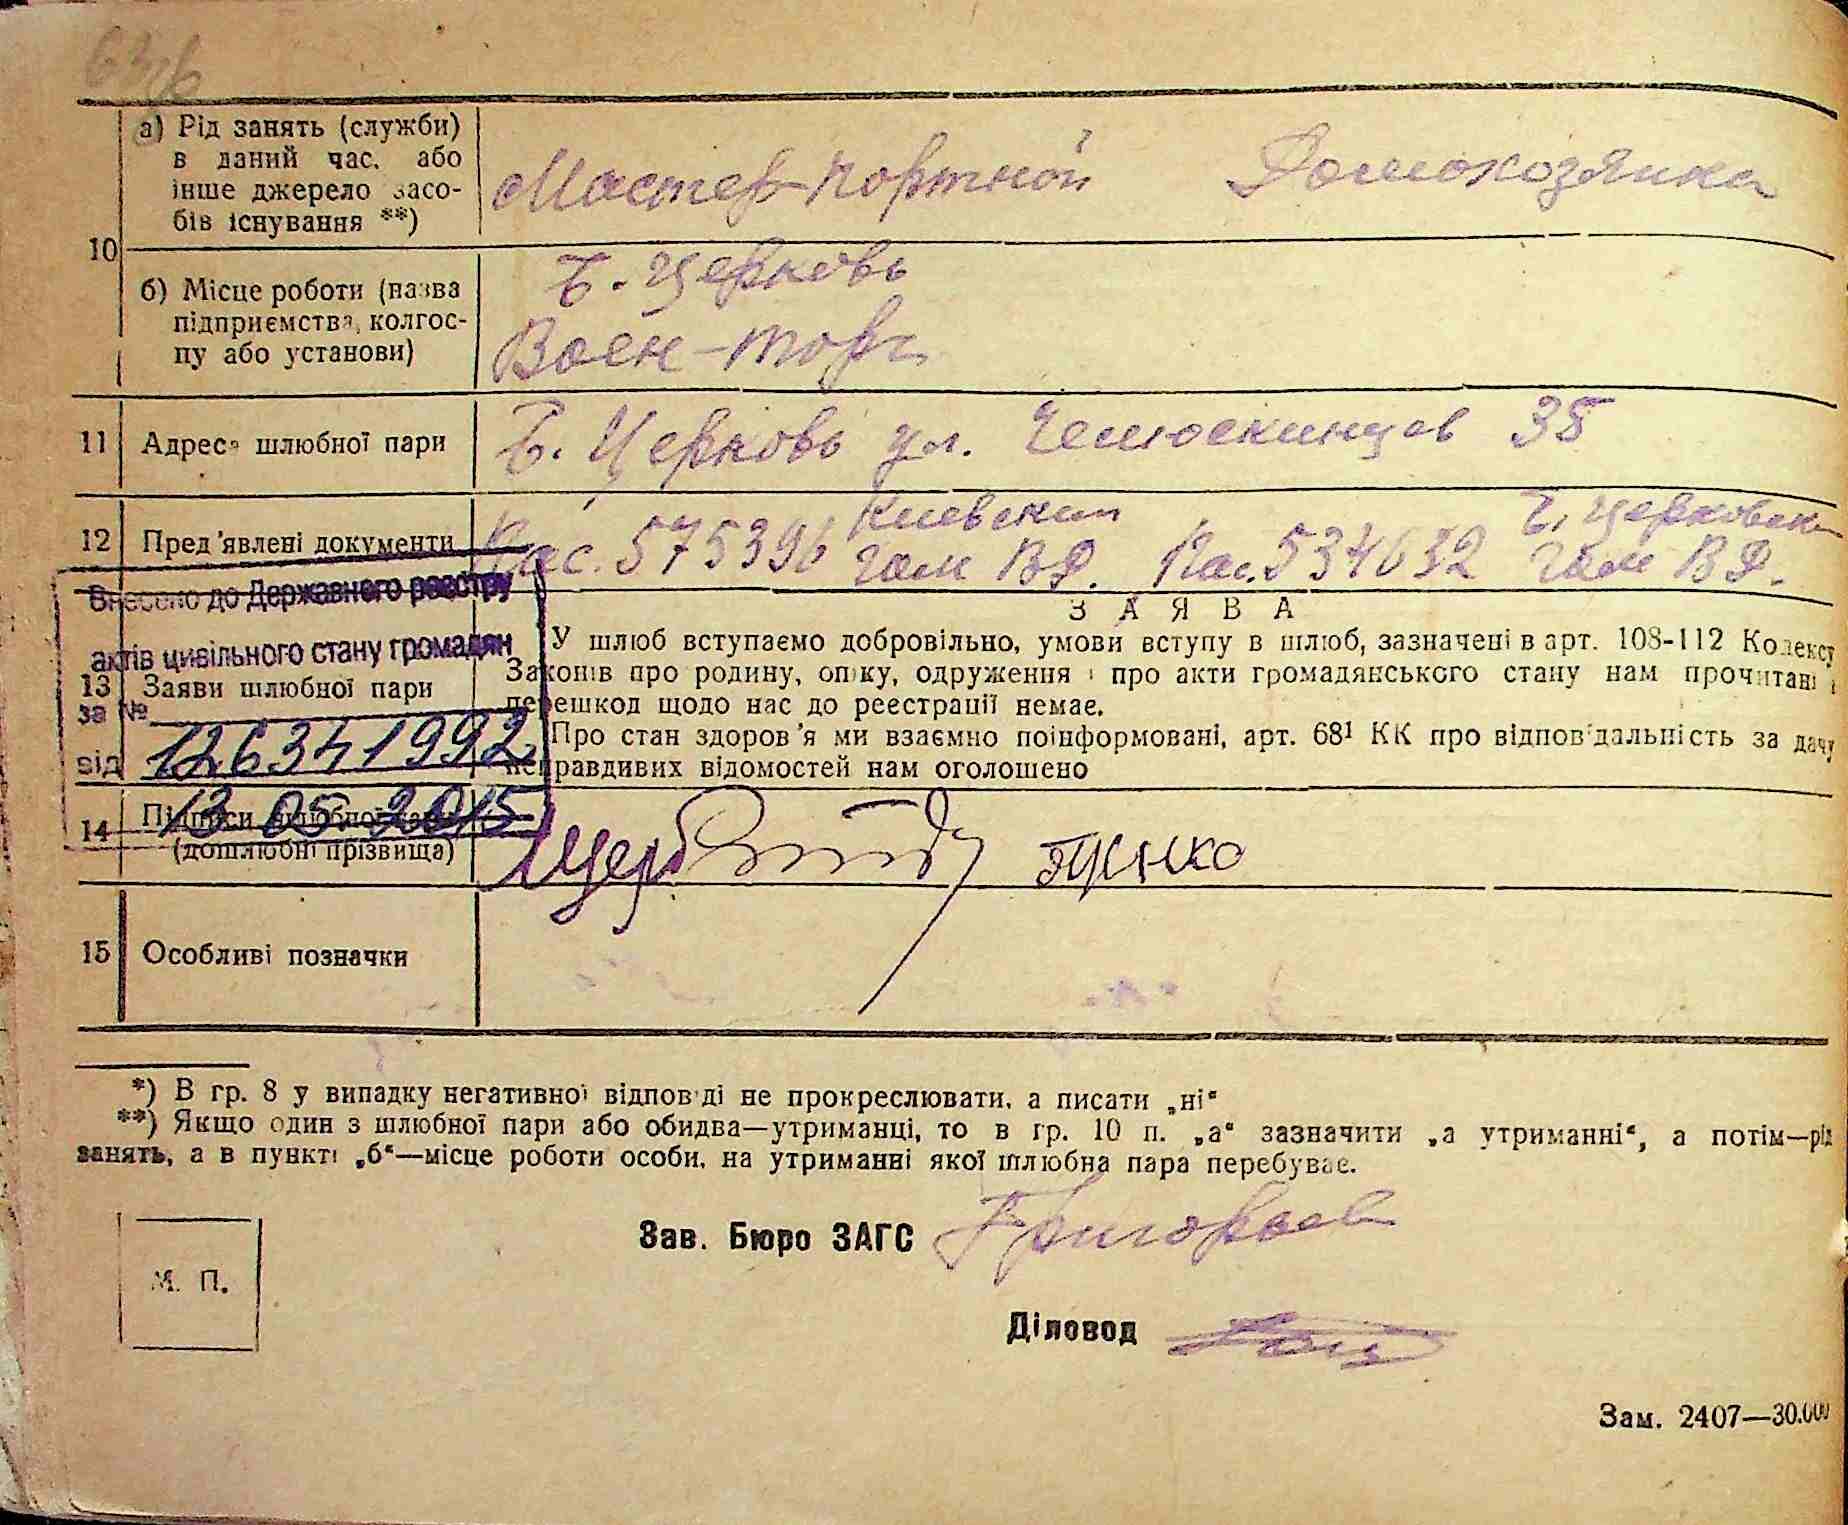 10
а) Рід занять (служби)
в даний час, або
інше джерело засо-
бів існування **)
Мастер-портной
Домохозяйка
б) Місце роботи (назва
підприємства, колгос-
пу або установи)
Б. Церковь
Воен-торг
11
Адреса шлюбної пари
Б. Церковь ул. Челюскинцев 35
12
Пред'явлені документи
Киевским
Б. Церковск
Пас. 575396 гом ВД. Пас. 534632 гом ВД.
Внесено до Державного реєстру
актів цивільного стану громадян
за №
126341992
від
13 05 2015
13
Заяви шлюбної пари
ЗАЯВА
У шлюб вступаємо добровільно, умови вступу в шлюб, зазначені в арт. 108-112 Кодексу
Законів про родину, опіку, одруження і про акти громадянського стану нам прочитані і
перешкод щодо нас до реєстрації немає.
Про стан здоров'я ми взаємно поінформовані, арт. 68¹ КК про відповідальність за дачу
неправдивих відомостей нам оголошено
14
Підписи шлюбної пари
(дошлюбні прізвища)
15
Особливі позначки
*) В гр. 8 у випадку негативної відповіді не прокреслювати, а писати „ні“
**) Якщо один з шлюбної пари або обидва—утриманці, то в гр. 10 п. „а“ зазначити „а утриманні“, а потім—рід
занять, а в пункті „б“—місце роботи особи, на утриманні якої шлюбна пара перебуває.
Зав. Бюро ЗАГС Григорьев
М. П.
Діловод
Зам. 2407—30.000